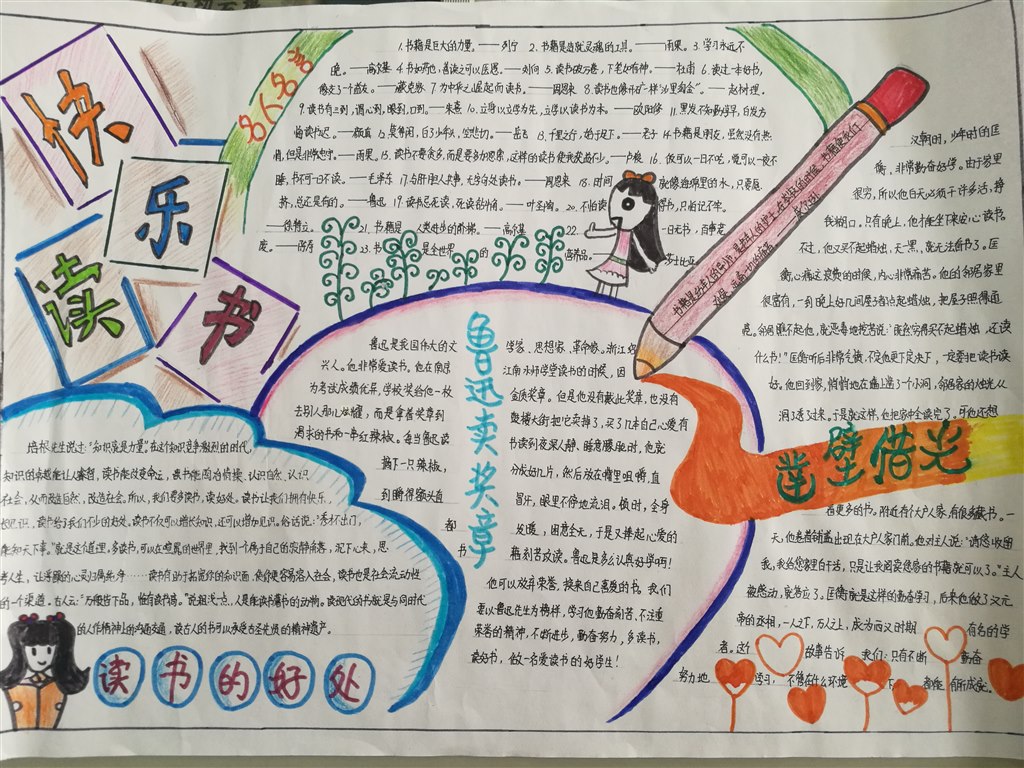 快
乐
读
书
名人名言
1.书籍是巨大的力量。——列宁 2.书籍是造就灵魂的工具。——雨果。3.学习永远不
晚。——高尔基 4.书犹药也,善读之可以医愚。——刘向 5.读书破万卷,下笔如有神。——杜甫 6.读过一本好书,
像交了一个益友。——臧克家 7.为中华之崛起而读书。——周恩来 8.读书也像开矿一样“沙里淘金”。——赵树理.
9.读书有三到,谓心到,眼到,口到。——朱熹 10.立身以立学为先,立学以读书为本。——欧阳修 11.黑发不知勤学早,白首方
悔读书迟。——颜真 12.莫等闲,白了少年头,空悲切。——岳飞 13.千里之行,始于足下。——老子 14.书籍是朋友,虽然没有热
情,但是非常忠实。——雨果。15.读书不要贪多,而是要多加思索,这样的读书使我获益不少。——卢梭 16.饭可以一日不吃,觉可以一夜不
睡,书不可一日不读。——毛泽东 17.与肝胆人共事,无字句处读书。——周恩来 18.时间 就像海绵里的水,只要愿
挤,总还是有的。——鲁迅 19.读书忌死读,死读钻牛角。——叶圣陶。20.不怕读 得书,只怕记不牢。
——徐特立。 21.书籍是 人类进步的阶梯。——高尔基 22. 一日无书,百事荒
废。——陈寿 23.书 是全世界 的 营养品。—— 莎士比亚
鲁迅卖奖章
鲁迅是我国伟大的文 学家、思想家、革命家。浙江绍
兴人。他非常爱读书。他在南京 江南水师学堂读书的时候,因
为考试成绩优异,学校奖给他一枚 金质奖章。但是他没有戴此奖章,也没有
去别人那儿炫耀,而是拿着奖章到 鼓楼大街把它卖掉了,买了几本自己心爱有
渴求的书和一串红辣椒。每当鲁迅读 书读到夜深人静、睡意朦胧时,他就
摘下一只辣椒, 分成好几片,然后放在嘴里咀嚼,直
到嚼得额头直 冒汗,眼里不停地流泪。顿时,全身
发暖,困意全无,于是又捧起心爱的
书 籍刻苦攻读。鲁迅是多么认真好学啊!
他可以放弃荣誉,换来自己喜爱的书。我们
要以鲁迅先生为榜样,学习他勤奋刻苦、不注重
荣誉的精神,不断进步,勤奋努力,多读书,
读好书,做一名爱读书的好学生!
凿壁借光
汉朝时,少年时的匡
衡,非常勤奋好学。由于家里
很穷,所以他白天必须干许多活,挣
钱糊口。只有晚上,他才能坐下来安心读书。
不过,他又买不起蜡烛,天一黑,就无法看书了。匡
衡心痛这浪费的时间,内心非常痛苦。他的邻居家里
很富有,一到晚上好几间屋子都点起蜡烛,把屋子照得通
亮。 还读
什么书!”匡衡听后非常气愤,不过他更下定决心,一定要把书读
好。他回到家,悄悄地在墙上凿了个小洞,邻居家的烛光从
洞了透了过来。于是就这样,他把家中全读完了。可他还想
看更多的书。附近有个大户人家,有很多藏书。一
天,他卷着铺盖出现在大户人家门前。他对主人说:“请您收留
我,我给您家里白干活,只是让我阅读您家的书籍就可以了。”主人
被感动,就答应了。匡衡就是这样的勤奋学习,后来他做了汉元
帝的丞相,一人之下,万人之上,成为西汉时期 有名的学
者。这个 故事告诉 我们:只有不断 勤奋
努力地 学习, 不管在什么环境 下 都能 有所成就。
培根先生说过:“知识就是力量”。在这个知识竞争激烈的时代,
知识的卓越能让人睿智,读书能改变命运,
社会,从而改造自然,改造社会。所以,我们要多读书,读好处。读书让我们拥有快乐、
长见识。读书给了我们不少的好处。读书不仅可以增长知识,还可以增加见识。俗话说:“秀才不出门,
能知天下事。”就是这个道理。多读书,可以在喧嚣的世界里,找到一个属于自己的安静角落,沉下心来,思
考人生,让浮躁的心灵归属纯净……读书有助于拓宽你的知识面,使你更容易容入社会,读书也是社会流动性
的一个渠道。古人云:“万般皆下品,惟有读书高。”说粗浅一点,人是能读书写书的动物。读现代的书就是与同时代
的人作精神上的沟通交通,读古人的书可以承受古圣先贤的精神遗产。
读书的好处